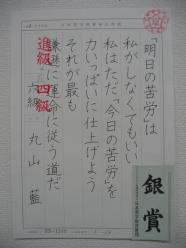 「明日の苦労」は
私がしなくてもいい
私はただ「今日の苦労」を
力いっぱいに仕上げよう
それが最も
謙遜に運命に従う道だ
六級 丸山 藍
進級 四級
銀賞